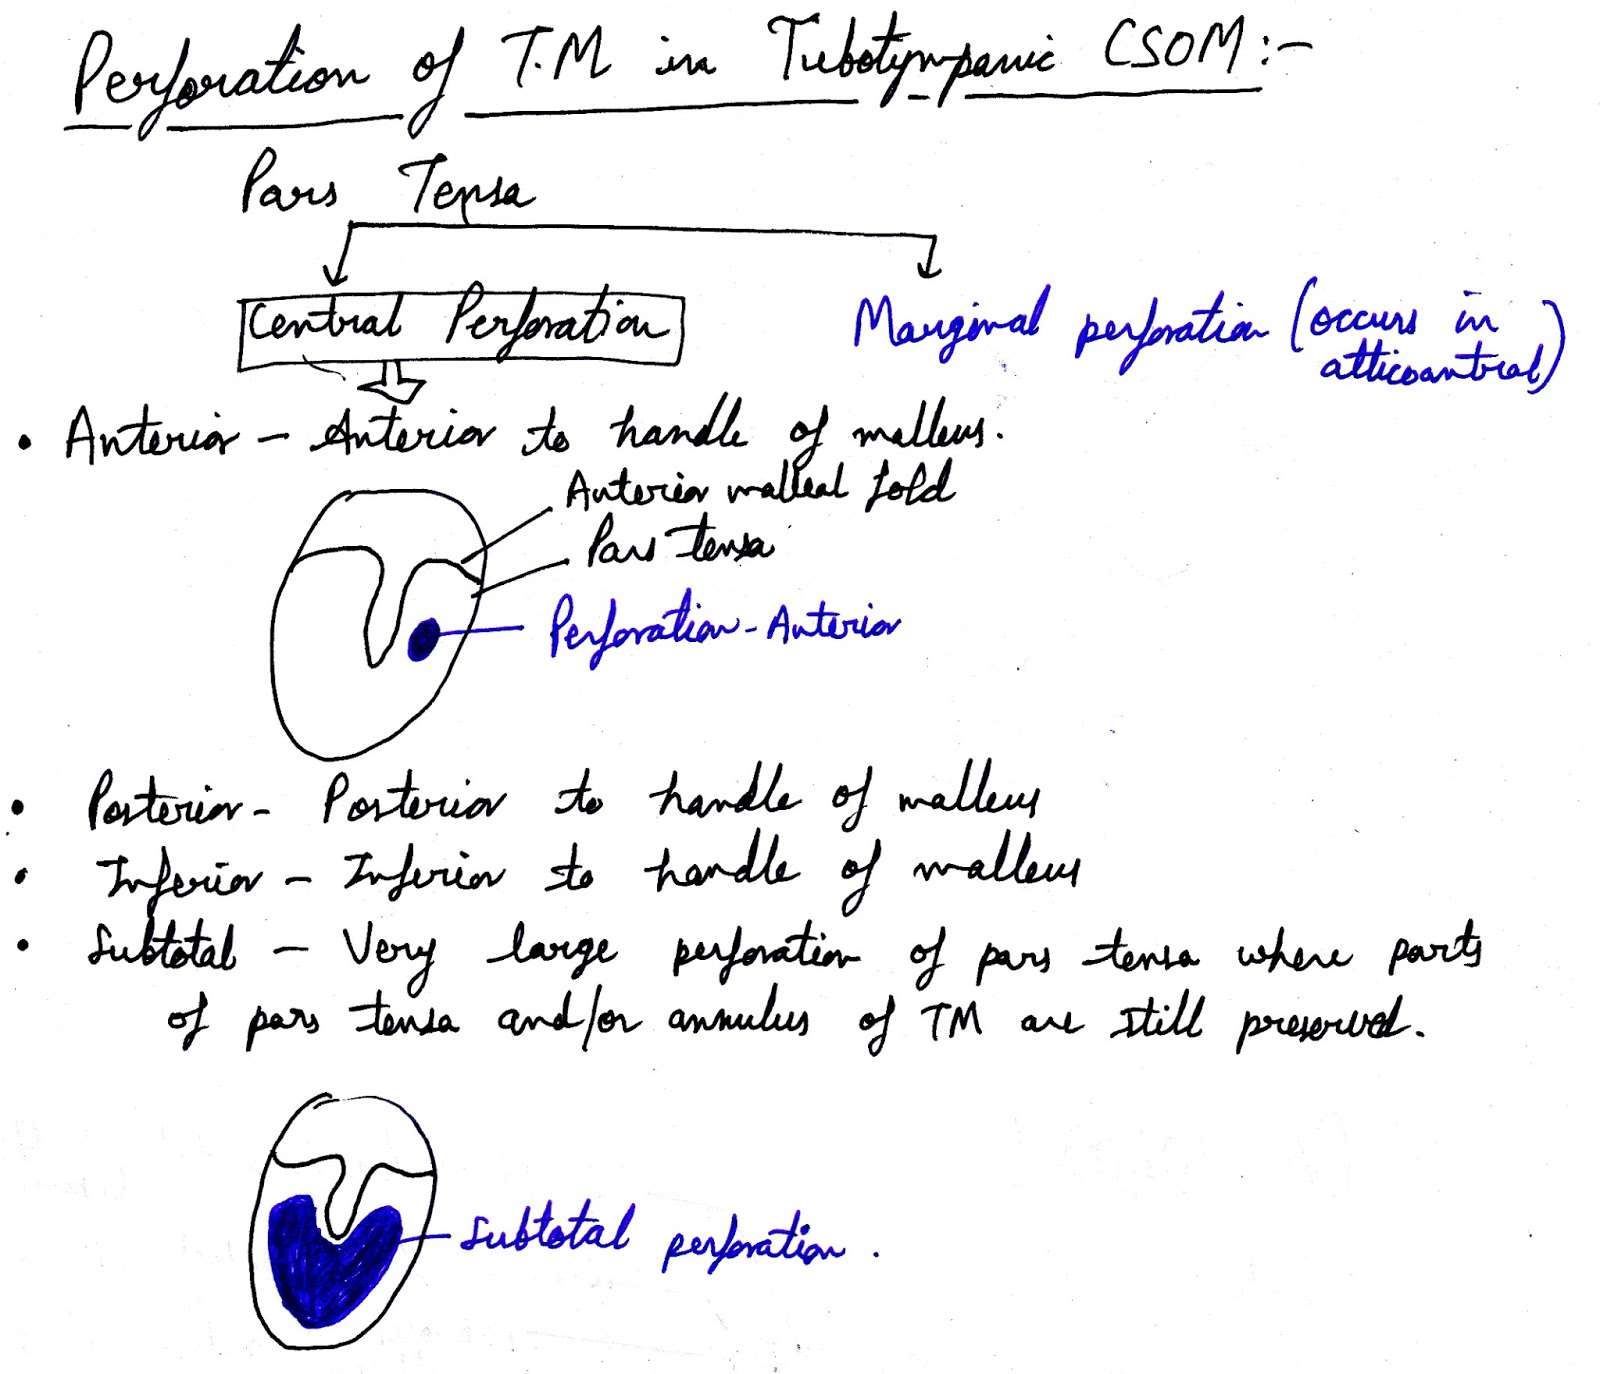 Perforation of T.M in Tubotympanic CSOM:-
Pars Tensa
Central Perforation
Marginal perforation (occurs in
atticoantral)
• Anterior - Anterior to handle of malleus.
Anterior malleal fold
Pars tensa
Perforation - Anterior
• Posterior - Posterior to handle of malleus
• Inferior - Inferior to handle of malleus
• Subtotal - Very large perforation of pars tensa where parts
of pars tensa and/or annulus of TM are still preserved.
Subtotal perforation.